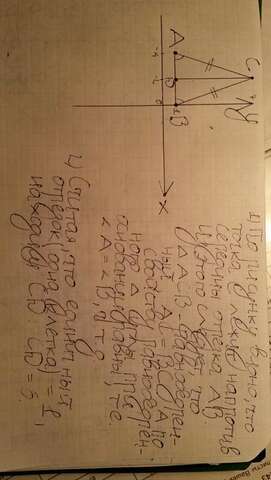 A
C
D
B
y
x
-4
0
1) По рисунку верно, что
точка C лежит напротив
середины отрезка AB.
Из этого следует, что
Δ ACB - равнобедрен-
ный. AC = BC. А по
свойству равнобедрен-
ного Δ углы при
основании равны, т.е.
∠A = ∠B,
2) Считая, что единичный
отрезок (одна клетка) = 1,
находим CD: CD = 5.